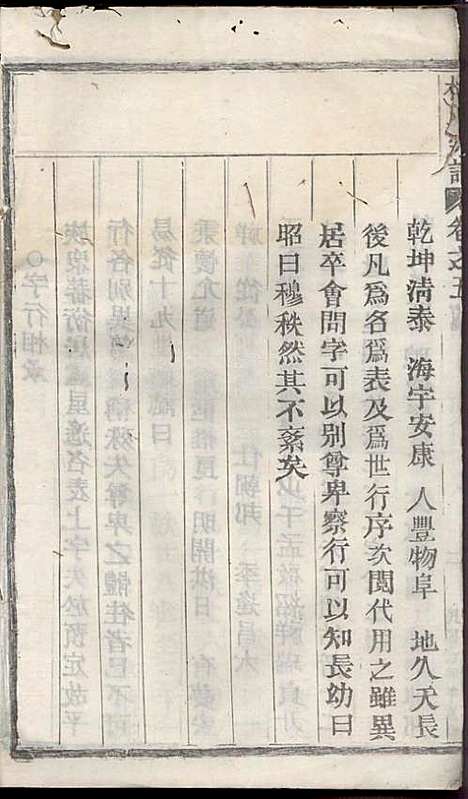 乾坤清泰　海宇安康　人豐物阜　地久天長
後凡爲名爲表及爲世行序次閱代用之雖異
居卒會問字可以别尊卑察行可以知長幼曰
昭曰穆秩然其不紊矣
卷之五